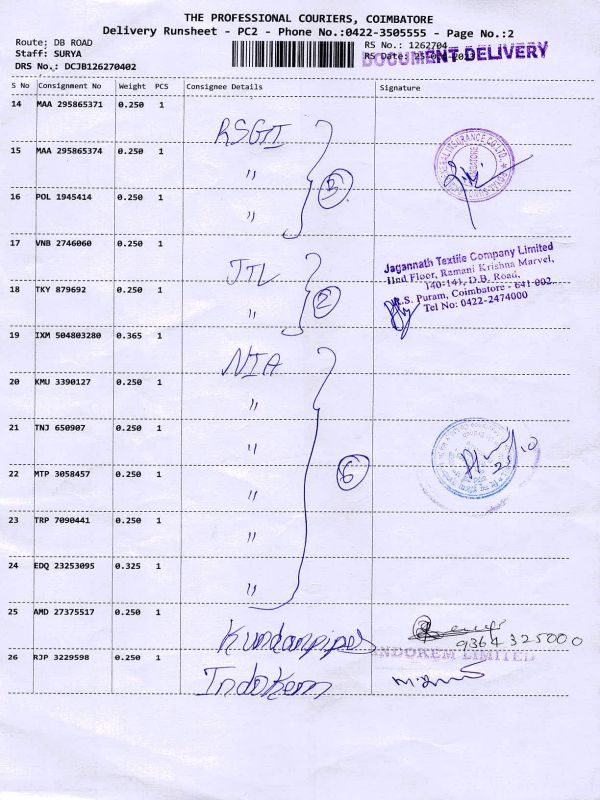 THE PROFESSIONAL COURIERS, COIMBATORE
Delivery Runsheet - PC2 - Phone No.:0422-3505555 - Page No.:2
Route: DB ROAD
RS No.: 1262704
Staff: SURYA
RS Date:
DOCUMENT DELIVERY
DRS No.: DCJB126270402
S No Consignment No Weight PCS Consignee Details Signature
14 MAA 295865371 0.250 1 RSGI
15 MAA 295865374 0.250 1 "
16 POL 1945414 0.250 1 "
3
17 VNB 2746060 0.250 1 JTL
18 TKY 879692 0.250 1 "
2
Jagannath Textile Company Limited
IInd Floor, Ramani Krishna Marvel,
140-141, D.B. Road,
R.S. Puram, Coimbatore - 641 002
Tel No: 0422-2474000
19 IXM 504803280 0.365 1 NIA
20 KMU 3390127 0.250 1 "
21 TNJ 650907 0.250 1 "
22 MTP 3058457 0.250 1 "
6
23 TRP 7090441 0.250 1 "
24 EDQ 23253095 0.325 1 "
25 AMD 27375517 0.250 1 Kundanpipes
9364325000
26 RJP 3229598 0.250 1 Indokem
INDOKEM LIMITED